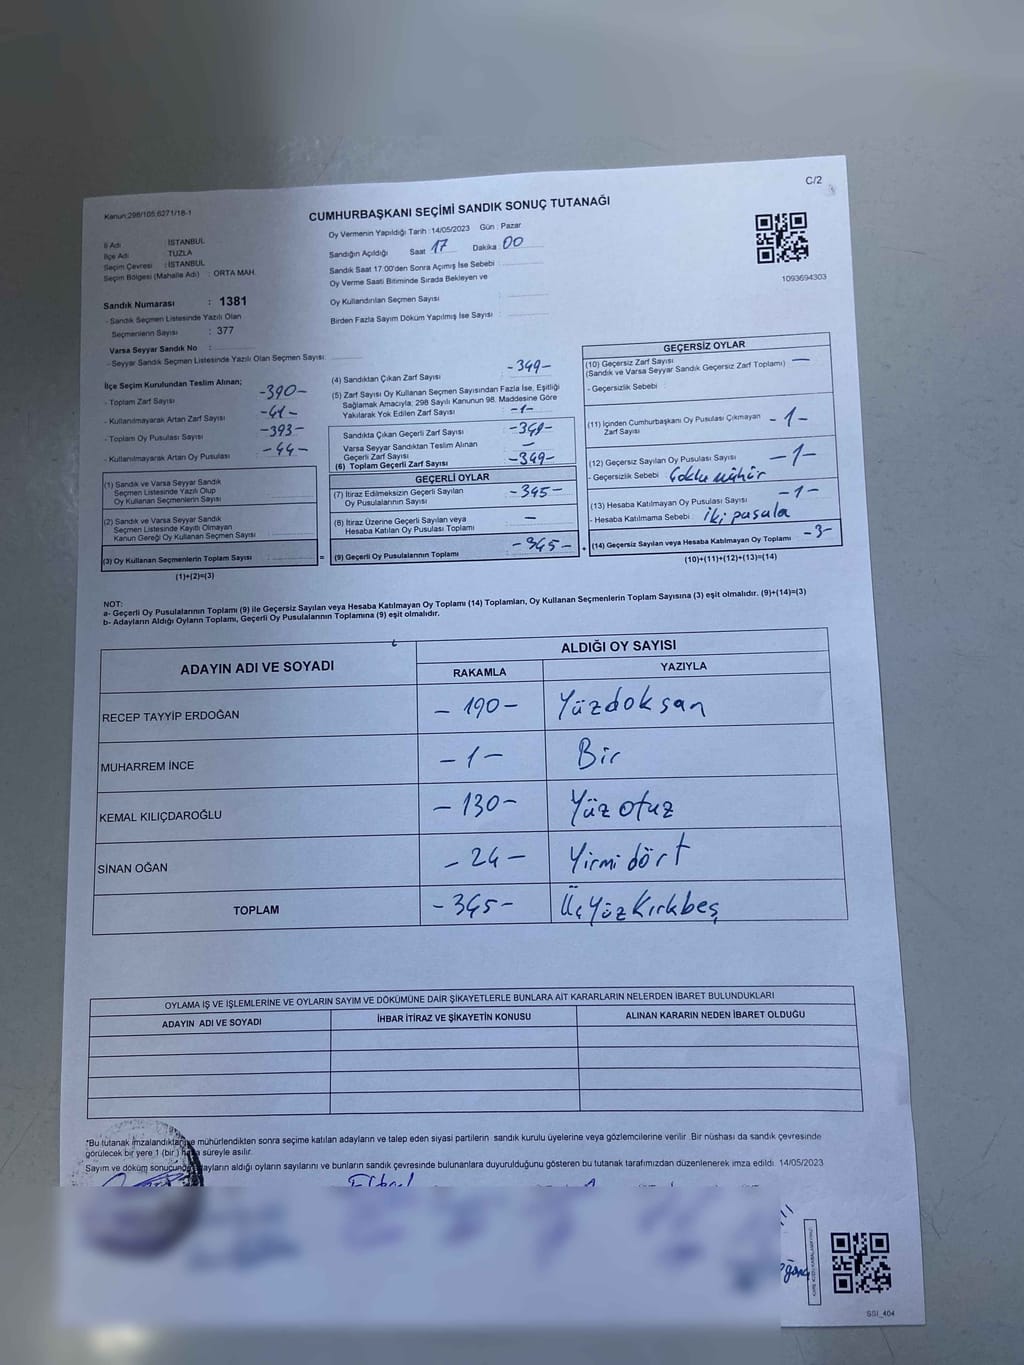 C/2
Kanun:298/105,6271/18-1
CUMHURBAŞKANI SEÇİMİ SANDIK SONUÇ TUTANAĞI
İl Adı : İSTANBUL
İlçe Adı : TUZLA
Seçim Çevresi : İSTANBUL
Seçim Bölgesi (Mahalle Adı) : ORTA MAH.
Sandık Numarası : 1381
- Sandık Seçmen Listesinde Yazılı Olan
Seçmenlerin Sayısı : 377
Varsa Seyyar Sandık No :
- Seyyar Sandık Seçmen Listesinde Yazılı Olan Seçmen Sayısı:
Oy Vermenin Yapıldığı Tarih : 14/05/2023 Gün : Pazar
Sandığın Açıldığı Saat 17 Dakika : 00
Sandık Saat 17:00'den Sonra Açımış İse Sebebi :
Oy Verme Saati Bitiminde Sırada Bekleyen ve
Oy Kullandırılan Seçmen Sayısı :
Birden Fazla Sayım Döküm Yapılmış İse Sayısı :
1093694303
İlçe Seçim Kurulundan Teslim Alınan;
- Toplam Zarf Sayısı -390-
- Kullanılmayarak Artan Zarf Sayısı -41-
- Toplam Oy Pusulası Sayısı -393-
- Kullanılmayarak Artan Oy Pusulası -44-
(1) Sandık ve Varsa Seyyar Sandık
Seçmen Listesinde Yazılı Olup
Oy Kullanan Seçmenlerin Sayısı
(2) Sandık ve Varsa Seyyar Sandık
Seçmen Listesinde Kayıtlı Olmayan
Kanun Gereği Oy Kullanan Seçmen Sayısı
(3) Oy Kullanan Seçmenlerin Toplam Sayısı =
(1)+(2)=(3)
(4) Sandıktan Çıkan Zarf Sayısı -349-
(5) Zarf Sayısı Oy Kullanan Seçmen Sayısından Fazla İse, Eşitliği
Sağlamak Amacıyla; 298 Sayılı Kanunun 98. Maddesine Göre
Yakılarak Yok Edilen Zarf Sayısı -1-
Sandıkta Çıkan Geçerli Zarf Sayısı
Varsa Seyyar Sandıktan Teslim Alınan
Geçerli Zarf Sayısı -
(6) Toplam Geçerli Zarf Sayısı -349-
GEÇERLİ OYLAR
(7) İtiraz Edilmeksizin Geçerli Sayılan
Oy Pusulalarının Sayısı -345-
(8) İtiraz Üzerine Geçerli Sayılan veya
Hesaba Katılan Oy Pusulası Toplamı -
(9) Geçerli Oy Pusulalarının Toplamı -345- +
GEÇERSİZ OYLAR
(10) Geçersiz Zarf Sayısı -
(Sandık ve Varsa Seyyar Sandık Geçersiz Zarf Toplamı)
- Geçersizlik Sebebi :
(11) İçinden Cumhurbaşkanı Oy Pusulası Çıkmayan
Zarf Sayısı -1-
(12) Geçersiz Sayılan Oy Pusulası Sayısı -1-
- Geçersizlik Sebebi Çoklu mühür
(13) Hesaba Katılmayan Oy Pusulası Sayısı -1-
- Hesaba Katılmama Sebebi : iki pusula
(14) Geçersiz Sayılan veya Hesaba Katılmayan Oy Toplamı -3-
(10)+(11)+(12)+(13)=(14)
NOT:
a- Geçerli Oy Pusulalarının Toplamı (9) ile Geçersiz Sayılan veya Hesaba Katılmayan Oy Toplamı (14) Toplamları, Oy Kullanan Seçmenlerin Toplam Sayısına (3) eşit olmalıdır. (9)+(14)=(3)
b- Adayların Aldığı Oyların Toplamı, Geçerli Oy Pusulalarının Toplamına (9) eşit olmalıdır.
ADAYIN ADI VE SOYADI ALDIĞI OY SAYISI
RAKAMLA YAZIYLA
RECEP TAYYİP ERDOĞAN - 190 - Yüzdoksan
MUHARREM İNCE - 1 - Bir
KEMAL KILIÇDAROĞLU - 130 - Yüz otuz
SİNAN OĞAN - 24 - Yirmi dört
TOPLAM - 345 - ÜçYüzKırkbeş
OYLAMA İŞ VE İŞLEMLERİNE VE OYLARIN SAYIM VE DÖKÜMÜNE DAİR ŞİKAYETLERLE BUNLARA AİT KARARLARIN NELERDEN İBARET BULUNDUKLARI
ADAYIN ADI VE SOYADI İHBAR İTİRAZ VE ŞİKAYETİN KONUSU ALINAN KARARIN NEDEN İBARET OLDUĞU
*Bu tutanak imzalandıktan ve mühürlendikten sonra seçime katılan adayların ve talep eden siyasi partilerin sandık kurulu üyelerine veya gözlemcilerine verilir. Bir nüshası da sandık çevresinde
görülecek bir yere 1 (bir) hafta süreyle asılır.
Sayım ve döküm sonucunda adayların aldığı oyların sayılarını ve bunların sandık çevresinde bulunanlara duyurulduğunu gösteren bu tutanak tarafımızdan düzenlenerek imza edildi. 14/05/2023
SSI_404